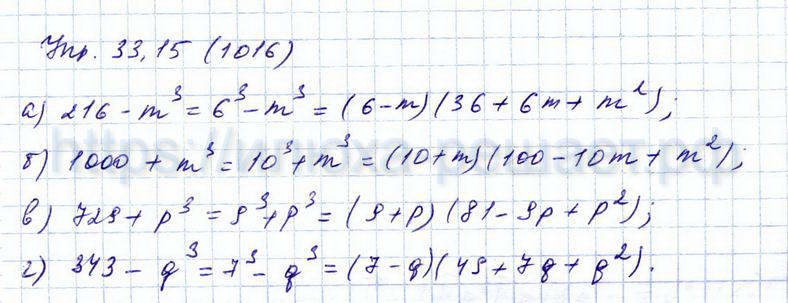 Упр. 33.15 (1016)
а) 216 - m³ = 6³ - m³ = (6-m) (36 + 6m + m²);
б) 1000 + m³ = 10³ + m³ = (10+m) (100 - 10m + m²);
в) 729 + p³ = 9³ + p³ = (9+p) (81 - 9p + p²);
г) 343 - q³ = 7³ - q³ = (7-q) (49 + 7q + q²).